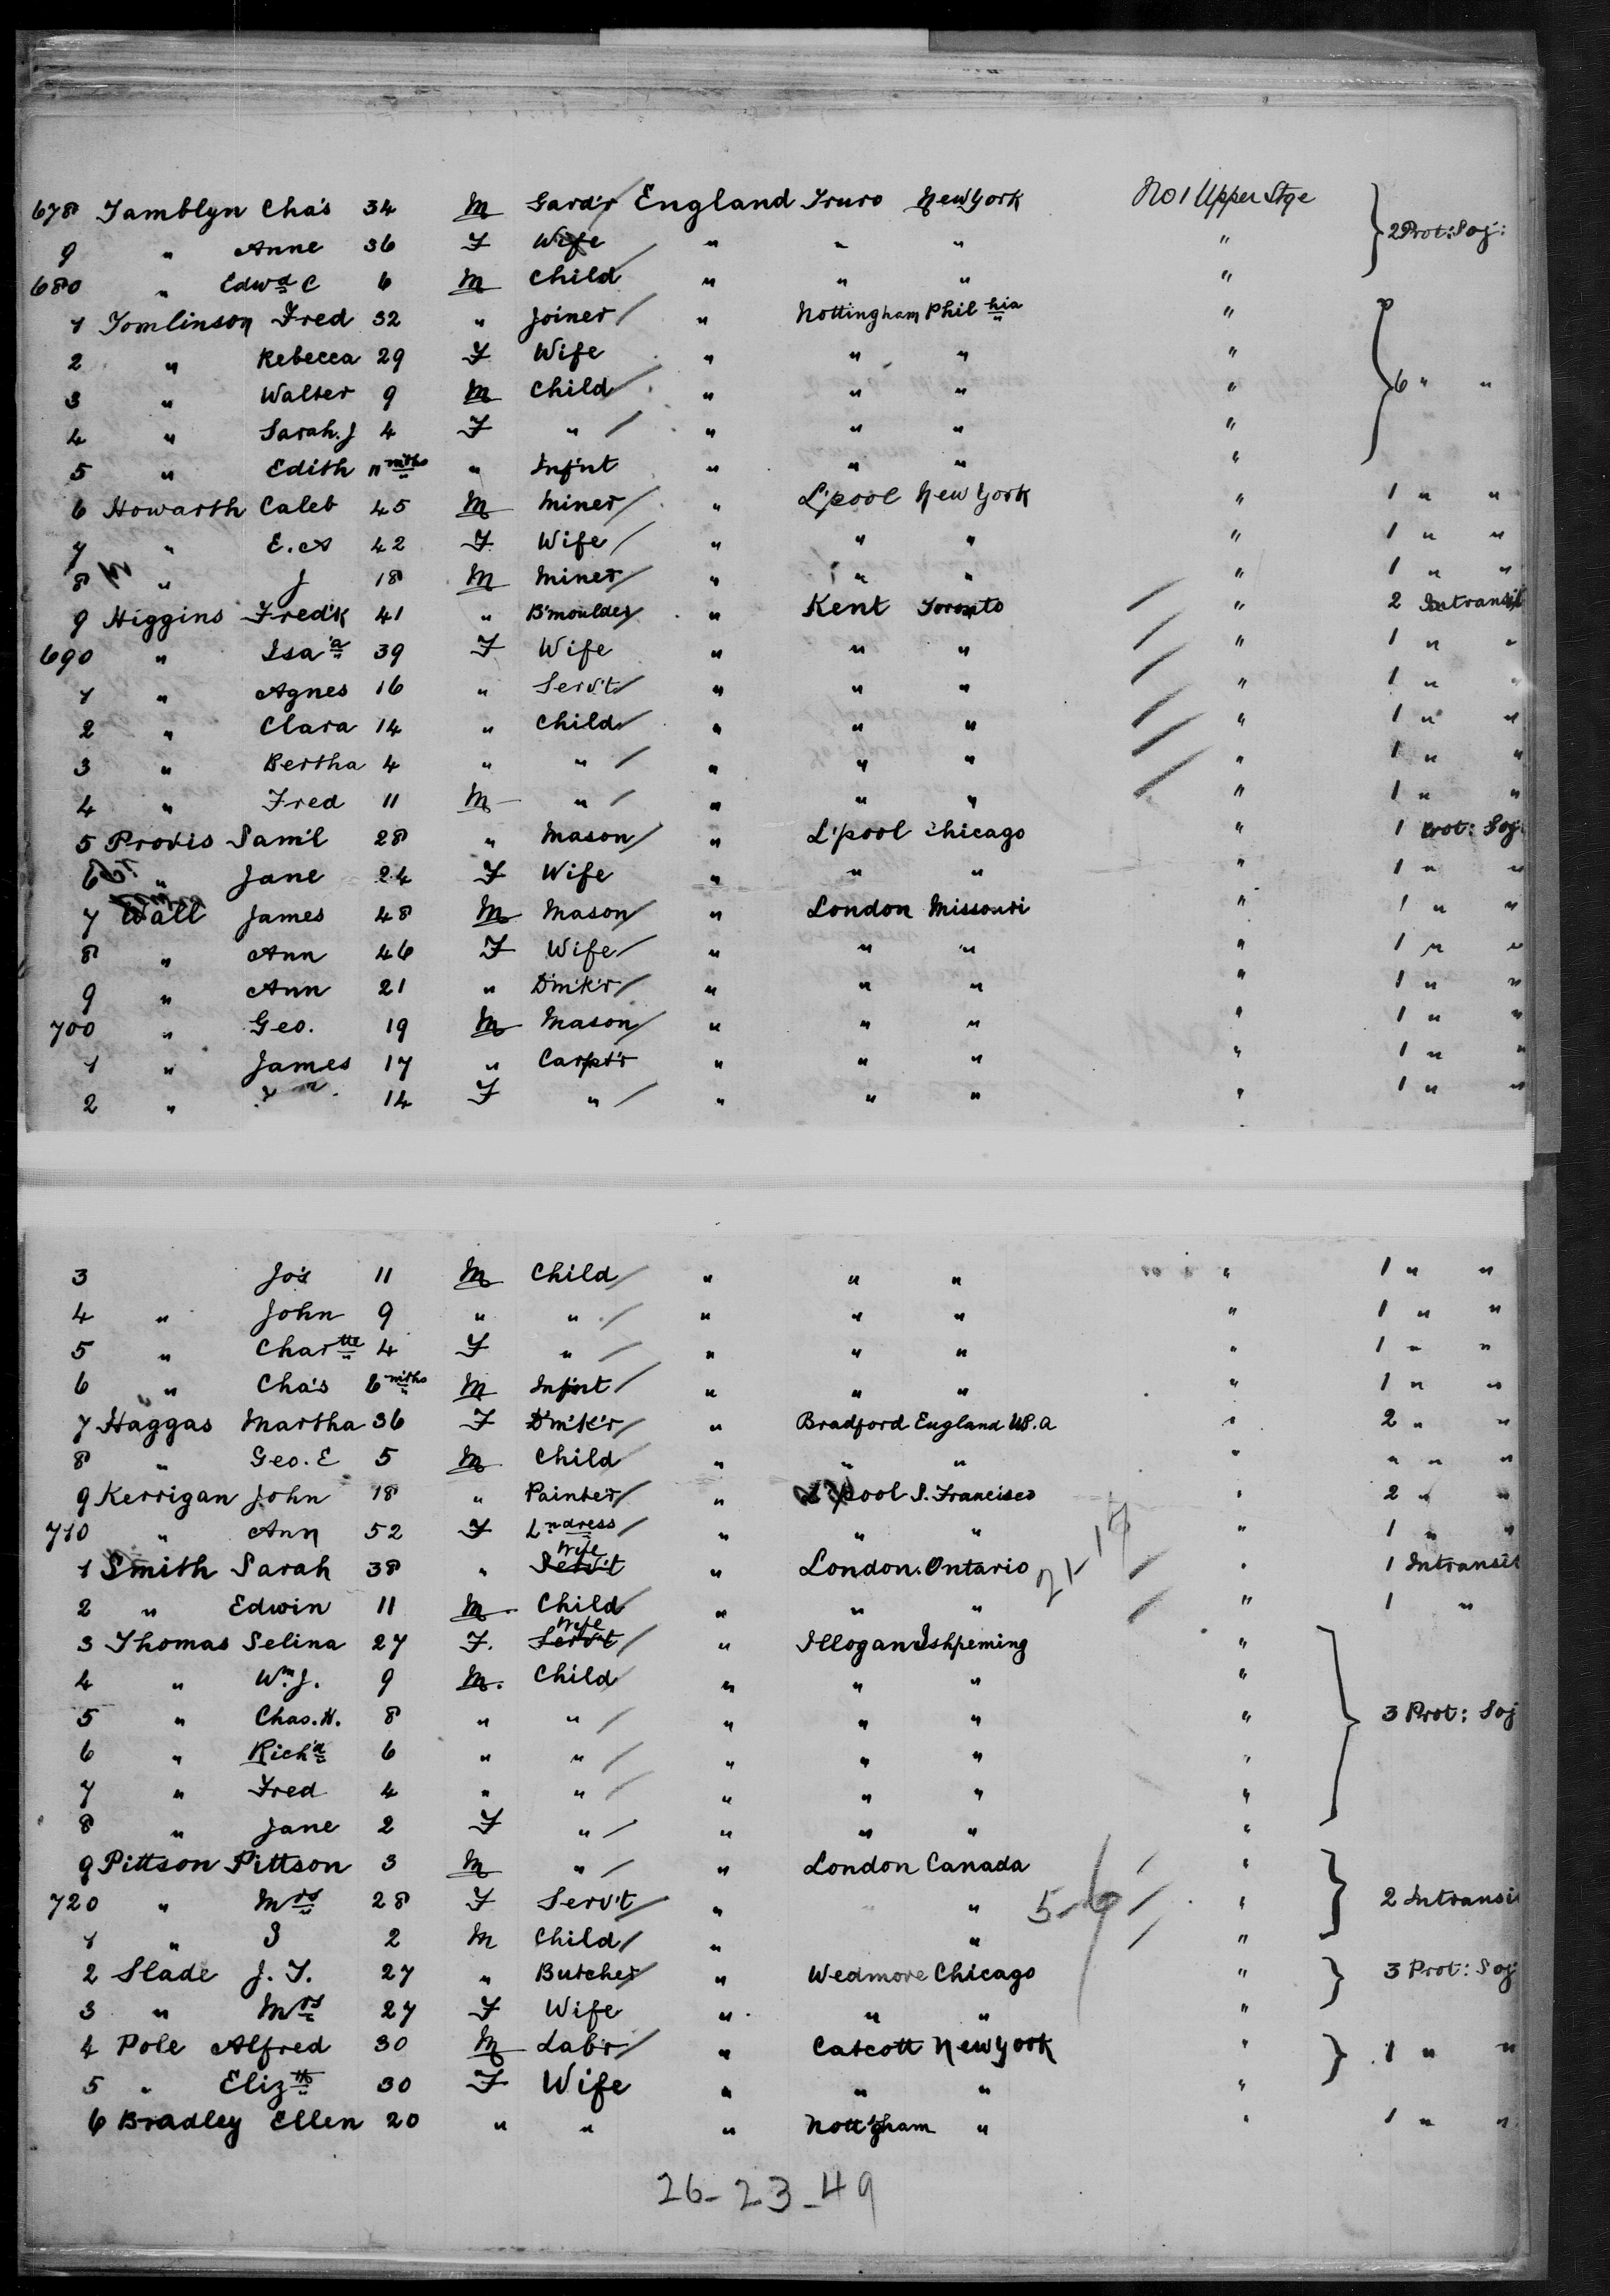 678 Tamblyn Cha's 34 M Gard'r England Truro New York No 1 Upper Stge 2 Prot: Soj:
9 " Anne 36 F Wife " " " "
680 " Edwd C 6 M Child " " " "
1 Tomlinson Fred 32 " Joiner " Nottingham Philhia "
2 " Rebecca 29 F Wife " " " "
3 " Walter 9 M Child " " " " 6 " "
4 " Sarah. J 4 F " " " " "
5 " Edith 11 mths " Inf'nt " " " "
6 Howarth Caleb 45 M Miner " L'pool New York " 1 " "
7 " E. A 42 F Wife " " " " 1 " "
8 " J 18 M Miner " " " " 1 " "
9 Higgins Fred'k 41 " B'moulder " Kent Toronto " 2 Intransit
690 " Isa'a 39 F Wife " " " " 1 " "
1 " Agnes 16 " Serv't " " " " 1 " "
2 " Clara 14 " Child " " " " 1 " "
3 " Bertha 4 " " " " " " 1 " "
4 " Fred 11 M " " " " " 1 " "
5 Provis Sam'l 28 " Mason " L'pool Chicago " 1 Prot: Soj
6 " Jane 24 F Wife " " " " 1 " "
7 Wall James 48 M Mason " London Missouri " 1 " "
8 " Ann 46 F Wife " " " " 1 " "
9 " Ann 21 " D'm'k'r " " " " 1 " "
700 " Geo. 19 M Mason " " " " 1 " "
1 " James 17 " Carpt'r " " " " 1 " "
2 " 14 F " " " " " 1 " "
3 Jo's 11 M Child " " " " 1 " "
4 " John 9 " " " " " " 1 " "
5 " Chartte 4 F " " " " " 1 " "
6 " Cha's 6 mths M Inf'nt " " " " 1 " "
7 Haggas Martha 36 F D'm'k'r " Bradford England U.S.A " 2 " "
8 " Geo. E 5 M Child " " " " " " "
9 Kerrigan John 18 " Painter " L'pool S. Francisco " 2 " "
710 " Ann 52 F Lndress " " " " 1 " "
1 Smith Sarah 38 " Serv't Wife " London. Ontario 21-17 " 1 Intransit
2 " Edwin 11 M Child " " " " 1 "
3 Thomas Selina 27 F. Serv't Wife " Illogan Ishpeming "
4 " Wm J. 9 M. Child " " " "
5 " Chas. H. 8 " " " " " " 3 Prot: Soj
6 " Rich'd 6 " " " " " "
7 " Fred 4 " " " " " "
8 " Jane 2 F " " " " "
9 Pittson Pittson 3 M " " London Canada "
720 " Mrs 28 F Serv't " " 5-6 " 2 Intransit
1 " S 2 M Child " " "
2 Slade J. T. 27 " Butcher " Wedmore Chicago " 3 Prot: Soj
3 " Mrs 27 F Wife " " " "
4 Pole Alfred 30 M Lab'r " Catcott New York " 1 " "
5 " Elizth 30 F Wife " " " "
6 Bradley Ellen 20 " " " Nott'gham " " 1 " "
26-23-49